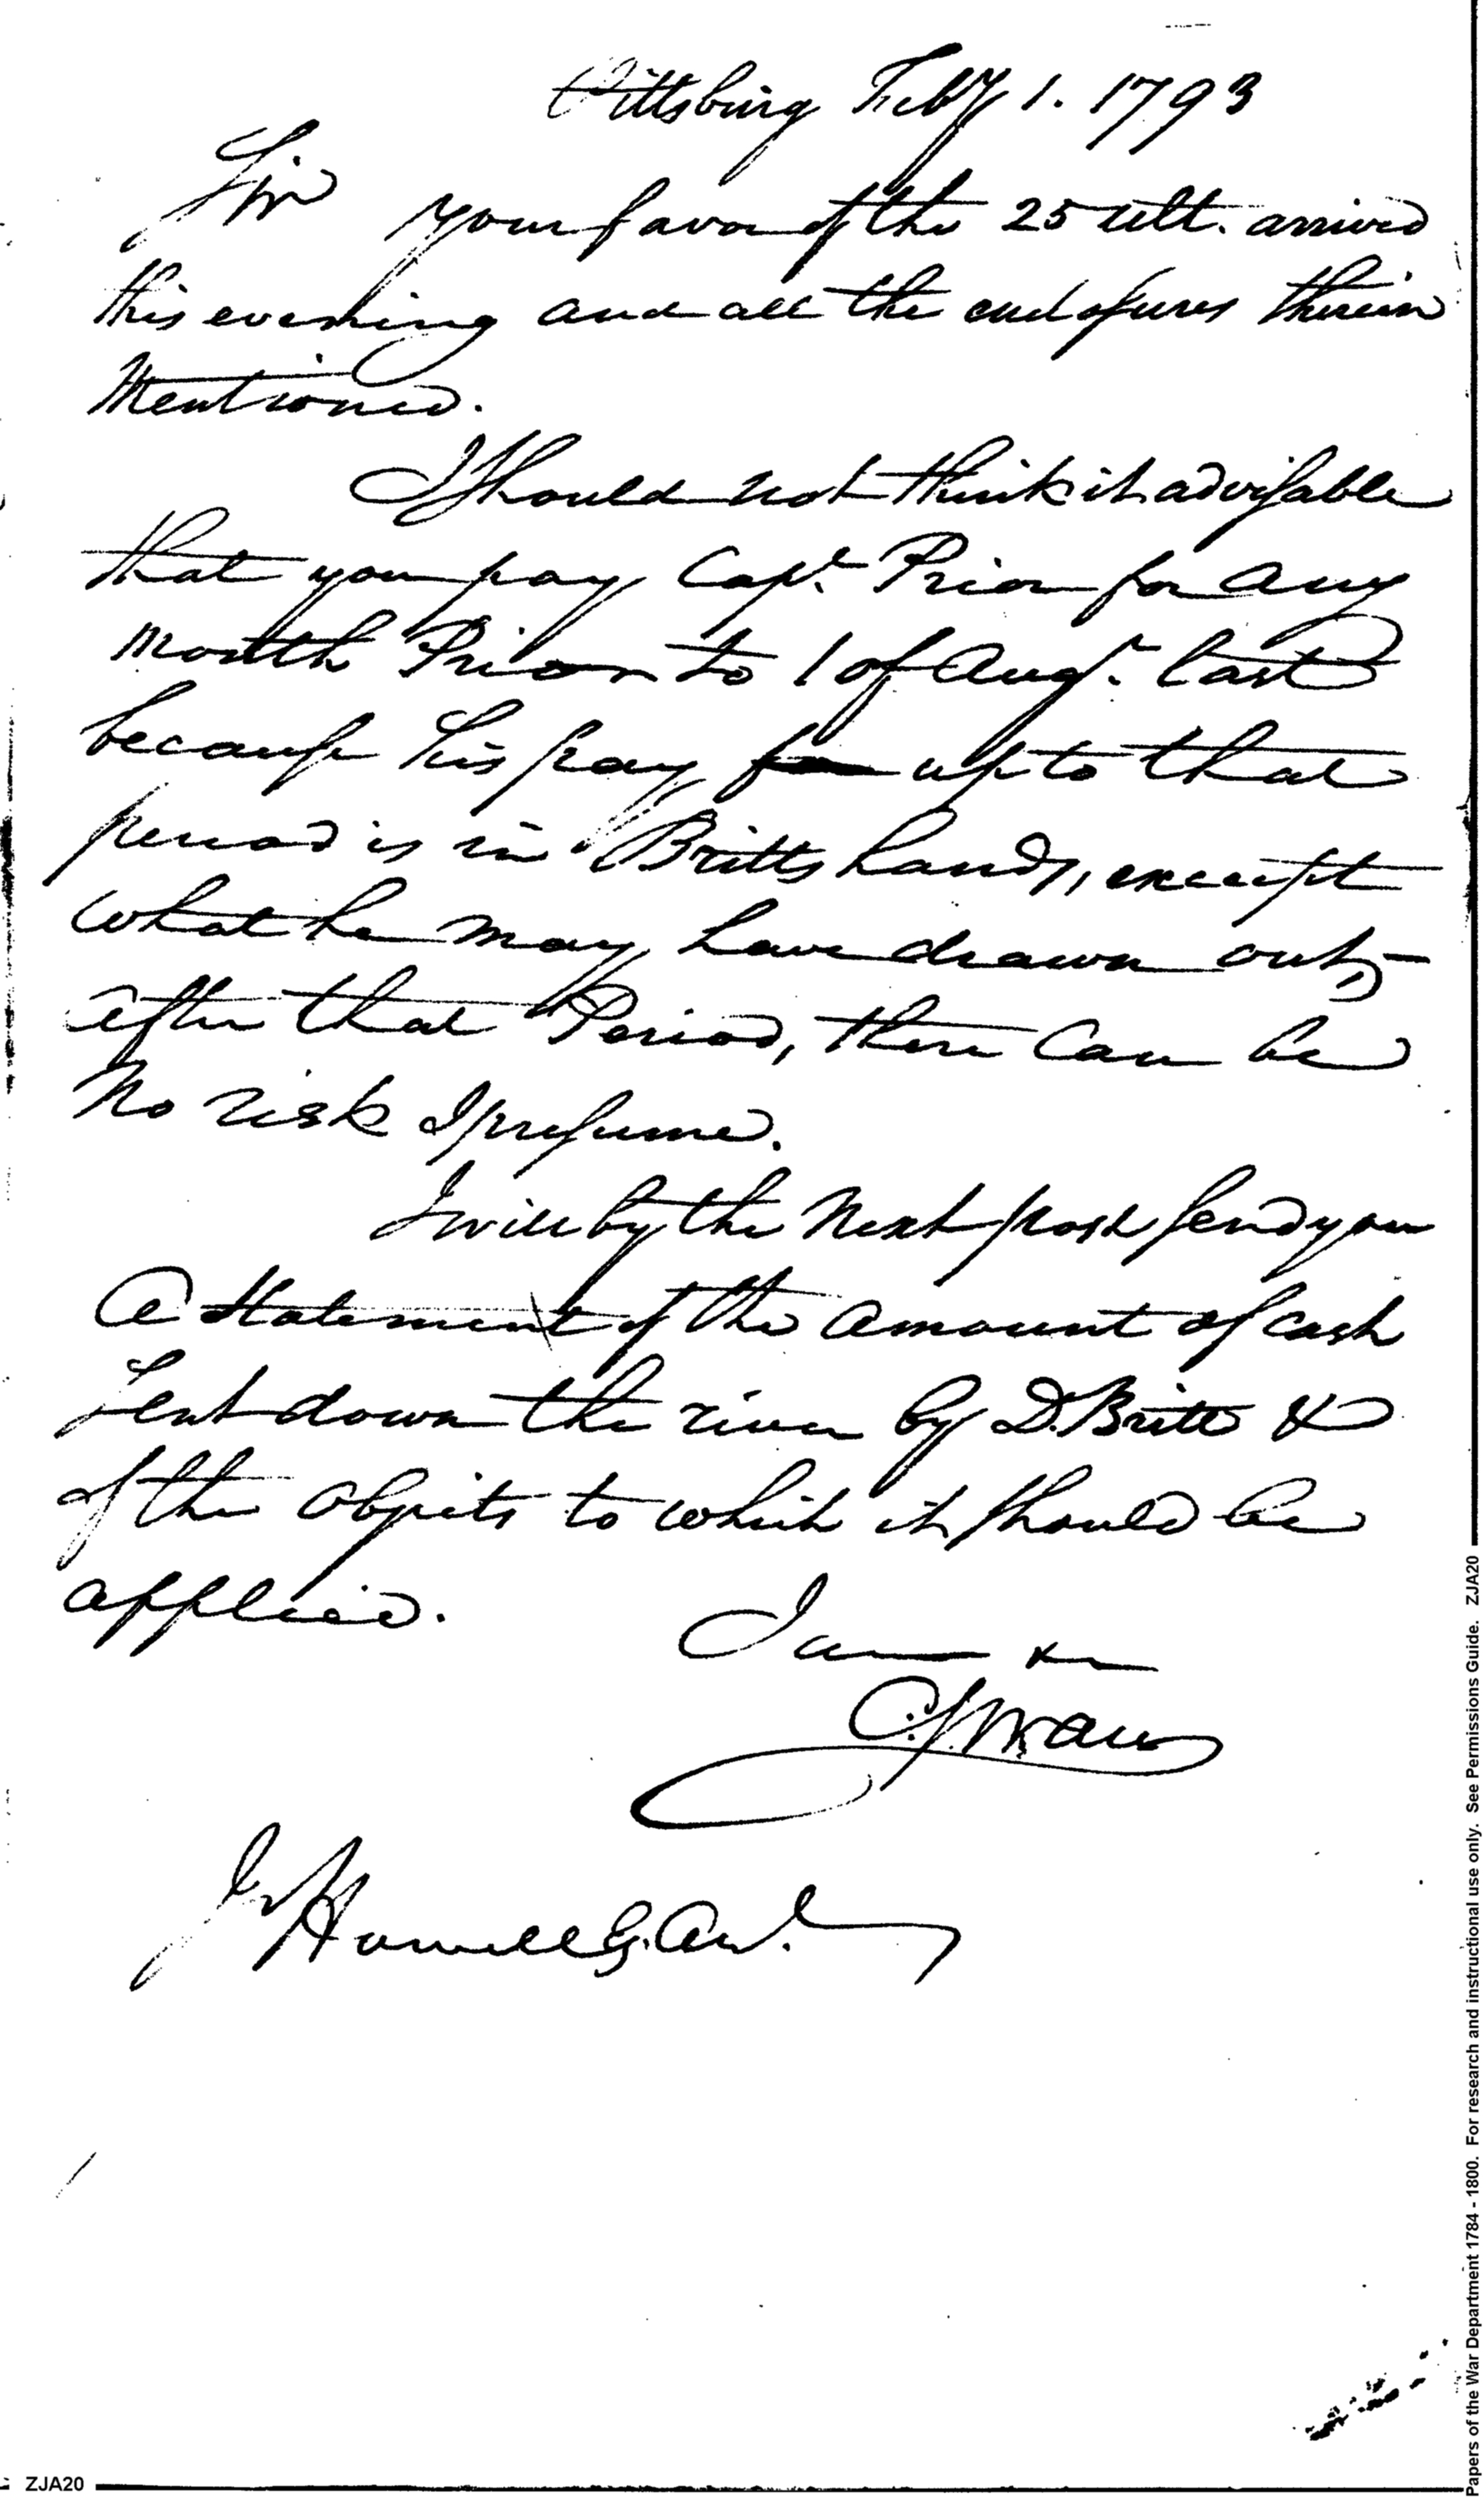 Pittsburg Feby 1. 1793
Sir your favor of the 25 ult. arrived
this evening and all the enclosures therein
Mentioned.
I Should not think it advisable
that you pay Capt. Prior for any
month Prior to 1 of Augt. last
because his pay for up to that
period is in Britts hands, except
what he may have drawn out,
after that Period, there can be
No risk I presume.
I will by the Next post send you
a statement of the amount of cash
sent down the river by D. Britt &
of the objects to which it should be
applied.
I am
C. Swan
J Howell G. Act.
ZJA20
Papers of the War Department 1784 - 1800. For research and instructional use only. See Permissions Guide. ZJA20